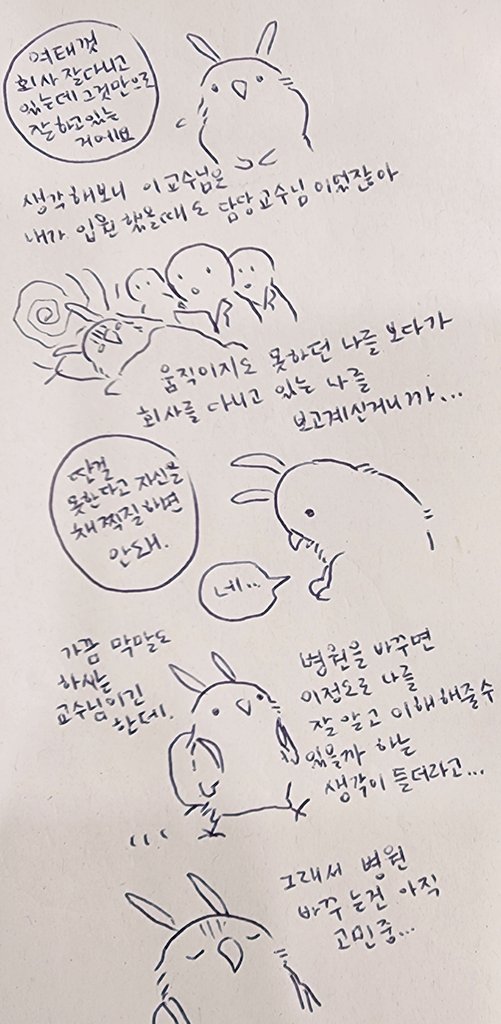 여태껏
회사 잘다니고
있는데 그것만으로
잘하고있는
거에요
생각해보니 이교수님은
내가 입원했을때도 담당교수님이었잖아
움직이지도 못하던 나를 보다가
회사를 다니고 있는 나를
보고계신거니까...
딴걸
못한다고 자신을
채찍질하면
안돼.
네...
가끔 막말도
하싰는
교수님이긴
한데.
병원을 바꾸면
이정도로 나를
잘 알고 이해해줄수
있을까 하는
생각이 들더라고...
그래서 병원
바꾸는건 아직
고민중...